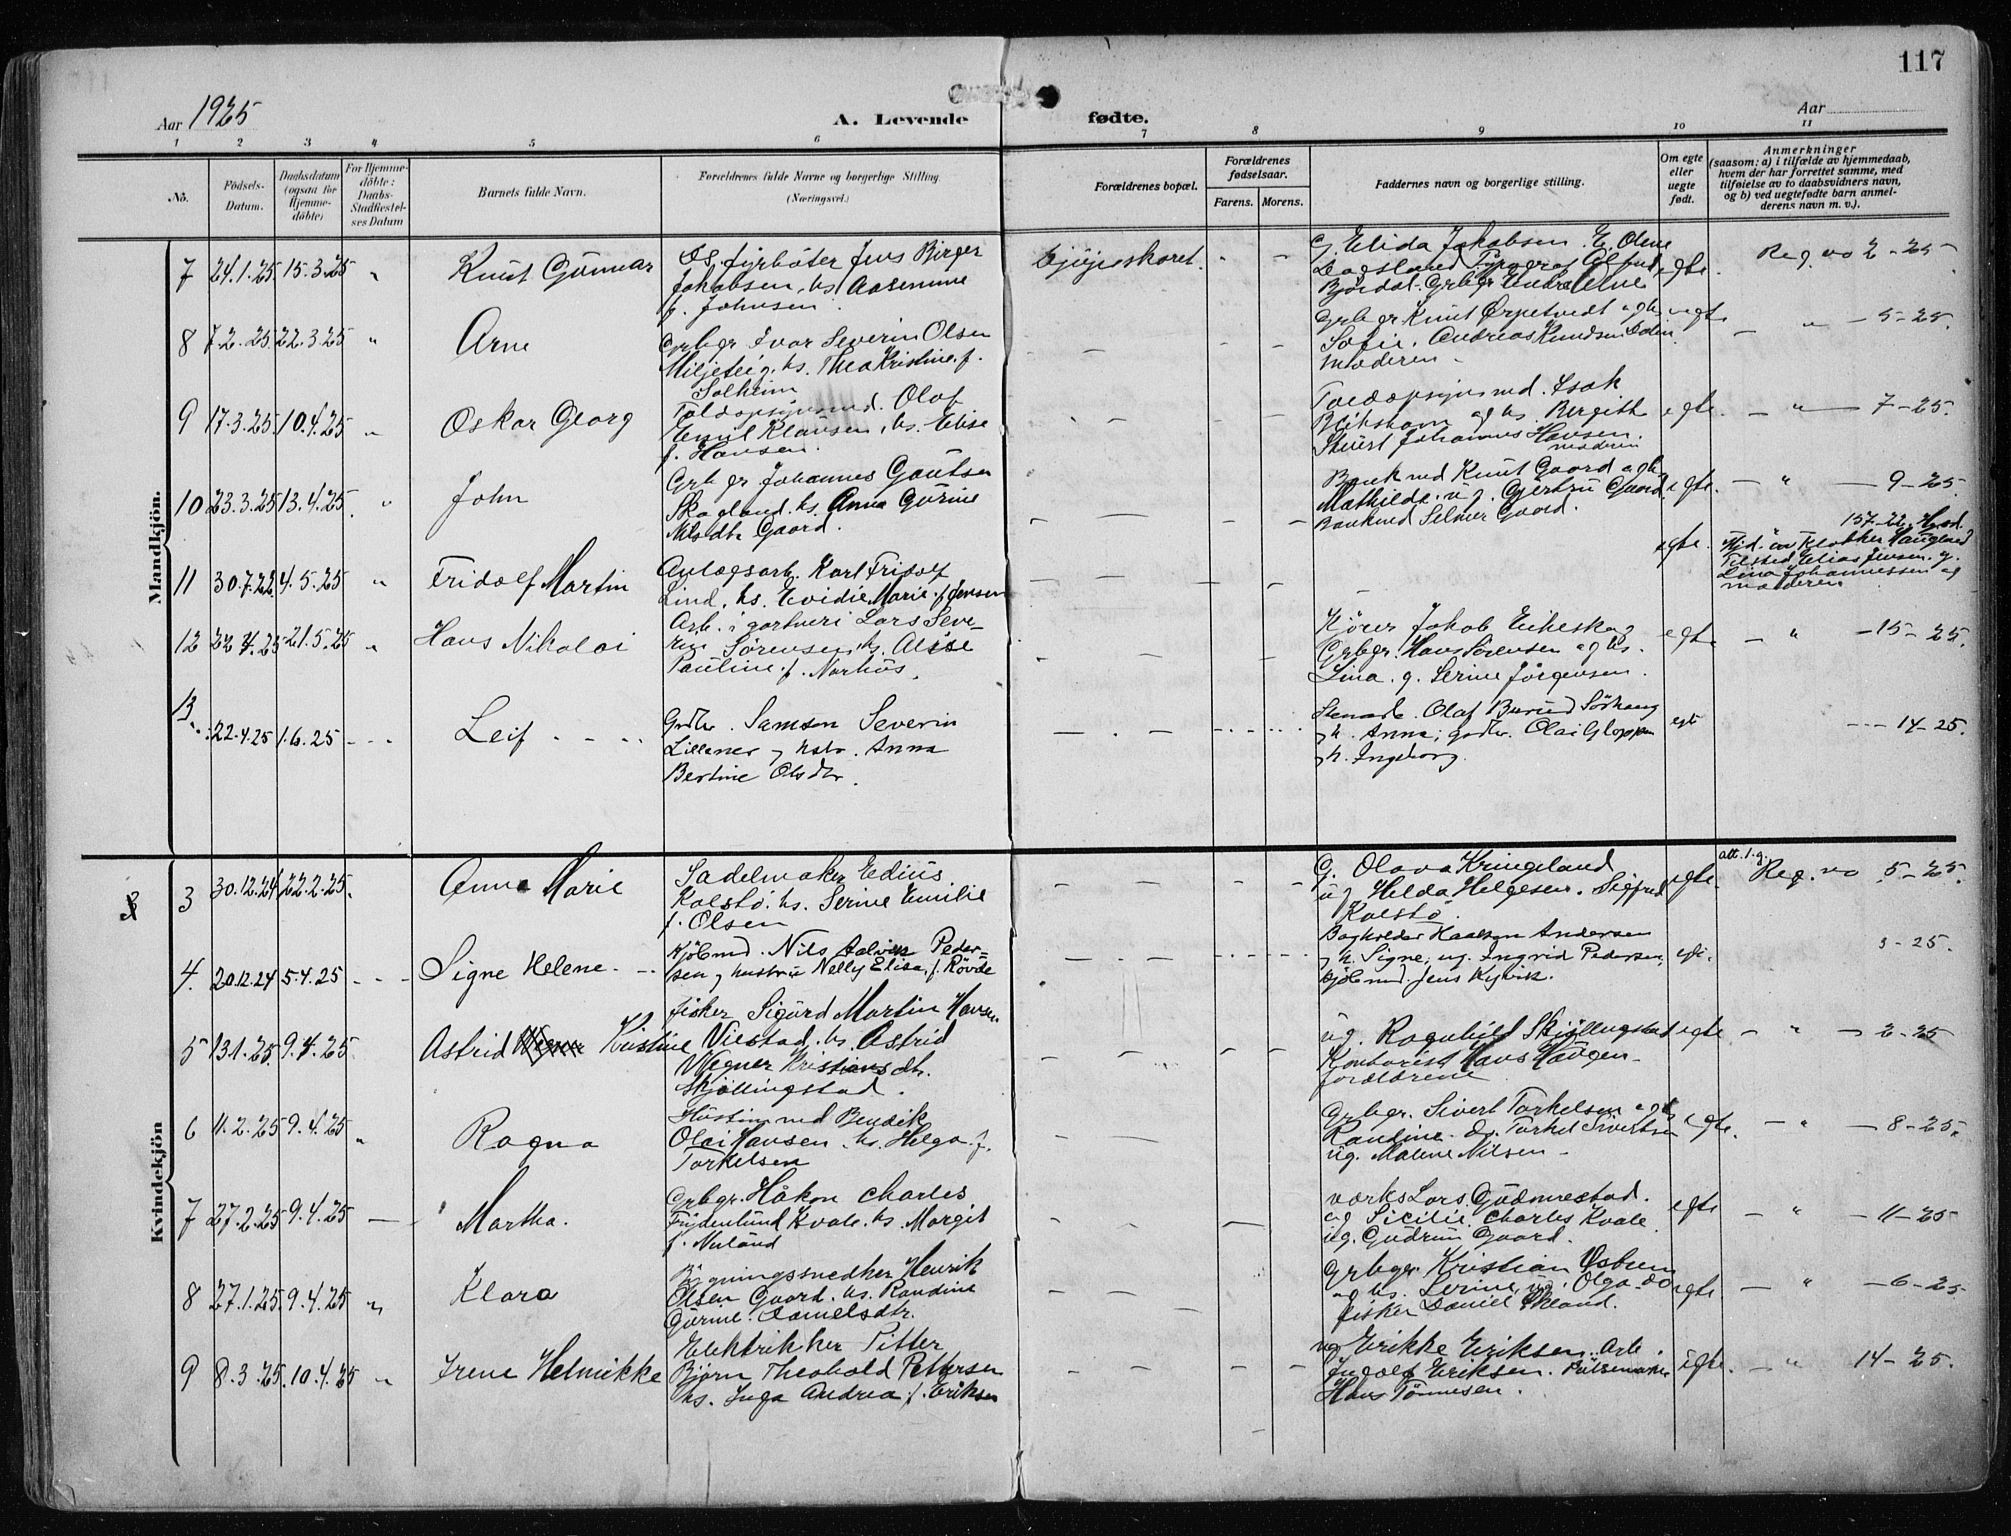 117
Aar 1925
A. Levende fødte.
Aar
1 2 3 4 5 6 7 8 9 10 11
No.
Fødsels-Datum.
Daabsdatum (ogsaa for Hjemmedöbte)
For Hjemmedöbte: Daabs-Stadfestelses Datum
Barnets fulde Navn.
Forældrenes fulde Navne og borgerlige Stilling (Næringsvei.)
Forældrenes bopæl.
Forældrenes fødselsaar.
Farens. Morens.
Faddernes navn og borgerlige stilling.
Om egte eller uegte født.
Anmerkninger (saasom: a) i tilfælde av hjemmedaab, hvem der har forrettet samme, med tilføielse av to daabsvidners navn, og b) ved uegtefødte barn anmelderens navn m. v.).
Mandkjön.
7 24.1.25 15.3.25 " Knut Gunnar
fyrböter Jens Birger
Jakobsen, hs Aasemine
f. Johnsen.
Elida Jakobsen. E. Olene
egte. Reg. no 2-25.
8 7.2.25 22.3.25 " Arne
Grbgr Ivar Severin Olsen
Miljeteig. hs. Thea Kristine f.
Solheim
Grbgr Knut Ørpetvedt og hs
Sofie. Andreas Knudsen
moderen
egte - " - 5-25.
9 17.3.25 10.4.25 " Oskar Georg
Toldopsynsmd. Olaf
Emil Klausen, hs. Elise
f. Hansen.
Toldopsynsmd. Isak
og hs. Bergith
Johannes Hansen.
moderen
egte. - " - 7-25.
10 23.3.25 13.4.25 " John
Grbgr Johannes Gautsen
Skogland. hs. Anna Gurine
Nilsdtr Gaard.
Bankmd Knut Gaard og hs
Mathilde. ug. Gjertru Gaard
Bankmd Selmer Gaard.
egte. - " - 9-25.
11 30.7.22 4.5.25 " Fridolf Martin
Anlægsarb. Karl Fridolf
Lind, hs. Evidie Marie f. Jensen
egte.
157-22. Hgsd.
Hjd. av Klokker Haugland
Tilsted Elias Jensen og
Lina Johannessen og
moderen
12 22.4.25 21.5.25 " Hans Nikolai
Arb. i gartneri Lars Seve-
rin Sørensen hs. Alise
Pauline f. Norhus.
Kjører Jakob Eikeskog
Grbgr. Hans Sørensen og hs.
Lina. g. Serine Jörgensen.
egte - " - 15-25.
13 22.4.25 1.6.25 - - - Leif - - - -
Samson Severin
Lillenes og hstr. Anna
Bertine Olsdtr.
Stenarb. Olaf
og h. Anna; Olai Gloppen
og h. Ingeborg.
egte --- 14-25.
Kvindekjön
3 30.12.24 22.2.25 " Anna Marie
Sadelmaker Edius
Kolstö. hs. Serine Emilie
f. Olsen
G. Olava Kringeland
ug Hilda Helgesen. Sigfred
Kolstö.
egte. att. 1.g. Reg. no 5-25.
4. 20.12.24 5.4.25 - - - Signe Helene - - -
Kjöbmd. Nils Aalvik Peder-
sen og hustru Nelly Elisa, f. Rövde
Bogholder Haakon Andersen
og h. Signe; ug. Ingrid Pedersen;
Kjöbmd. Jens Kyvik.
egte. 3-25.
5 13.1.25 9.4.25 Astrid Kristine
fisker Sigurd Martin Hansen
Viestad. hs. Astrid
Wegner Kristiansdtr.
Skjöllingstad.
ug. Ragnhild Skjöllingstad
Kontorist Hans Haugen.
forældrene
egte - " - 2-25
6 11.2.25 9.4.25 " Ragna
Hustimmermd Bendik
Olai Hansen. hs. Helga f.
Torkelsen
Grbgr. Sivert Torkelsen og hs
Randine. do. Torkel Sivertsen
ug. Malene Nilsen.
egte. - " - 8-25.
7 27.2.25 9.4.25 - " Martha.
Grbgr. Håkon Charles
Frydenlund Kvale. hs. Margit
f. Nuland
Lars Gudmestad.
og Sicilie. Charles Kvale.
ug. Gudrun Gaard.
egte - " - 11-25
8 27.1.25 9.4.25 " Klara
Bygningssnedker Henrik
Olsen Gaard. hs. Randine
Gurine. Danielsdtr.
Grbgr Kristian
og hs. Serine, ug. Olga do
fisker Daniel
egte - " - 6-25
9 8.3.25 10.4.25 " Irene Helmikke
Elektrikker Pitter
Bjørn Theobald Pettersen
hs. Inga Andrea f. Eriksen
ug Erikke Eriksen. Arb.
Eriksen. Pølsemaker
Hans Tönnesen.
egte. - " 14-25.